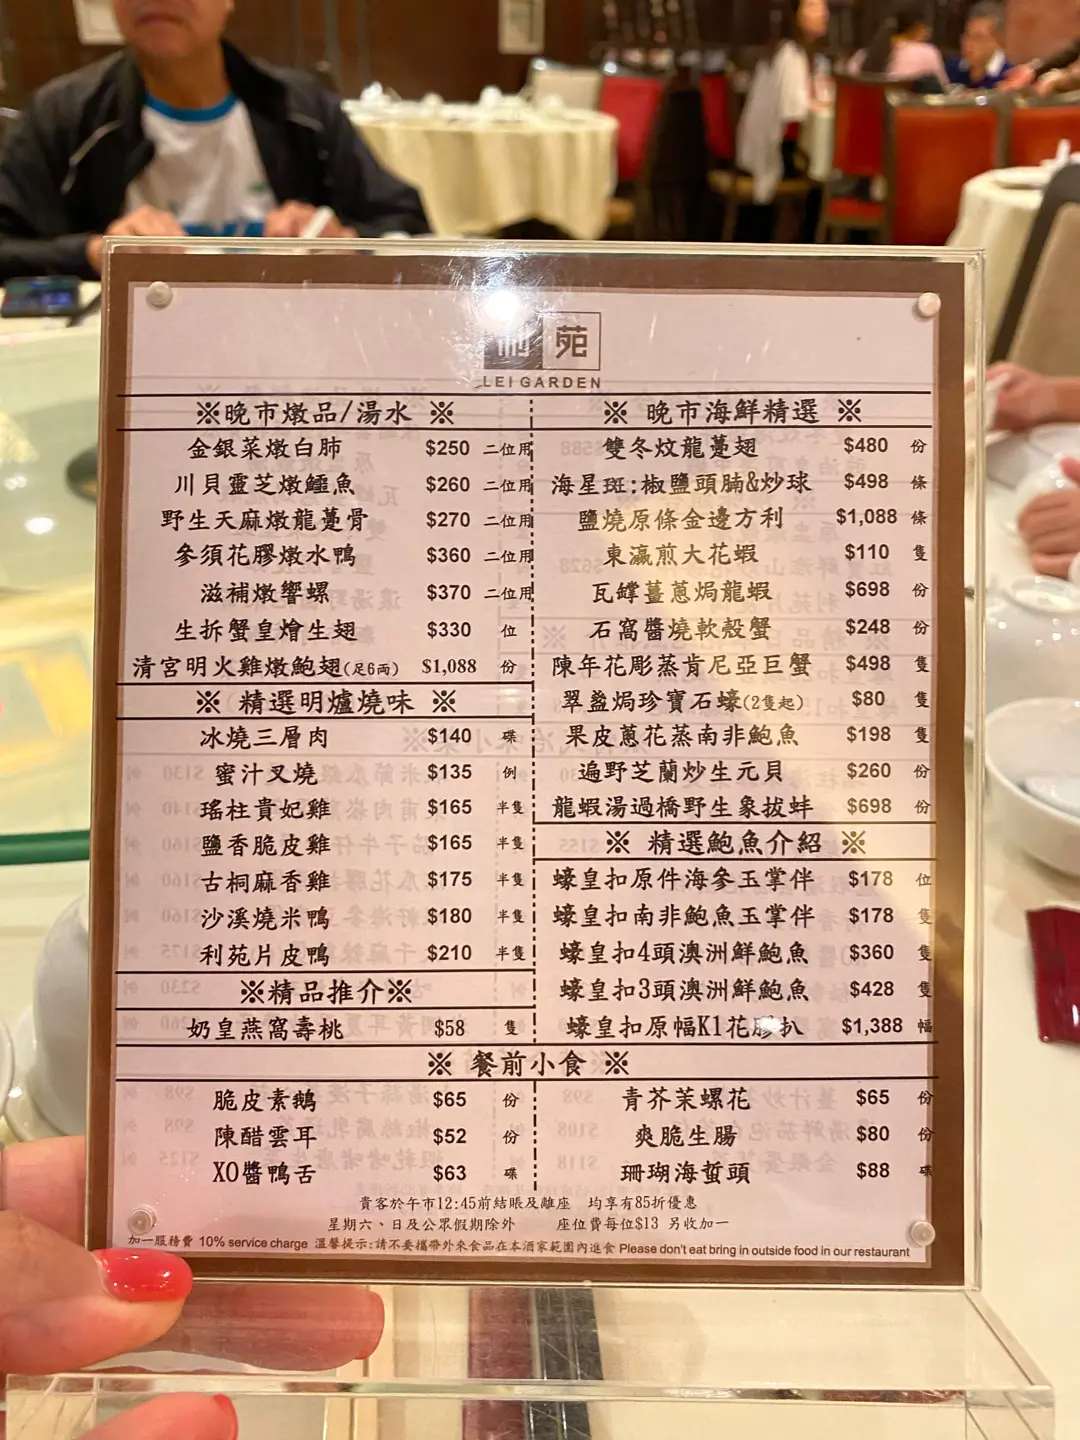 苑
LEI GARDEN
※晚市燉品/湯水 ※
金銀菜燉白肺 $250 二位用
川貝靈芝燉鱷魚 $260 二位用
野生天麻燉龍躉骨 $270 二位用
參須花膠燉水鴨 $360 二位用
滋補燉響螺 $370 二位用
生拆蟹皇燴生翅 $330 位
清宮明火雞燉鮑翅(足6両) $1,088 份
※ 精選明爐燒味 ※
冰燒三層肉 $140 碟
蜜汁叉燒 $135 例
瑤柱貴妃雞 $165 半隻
鹽香脆皮雞 $165 半隻
古桐麻香雞 $175 半隻
沙溪燒米鴨 $180 半隻
利苑片皮鴨 $210 半隻
※精品推介※
奶皇燕窩壽桃 $58 隻
※ 晚市海鮮精選 ※
雙冬炆龍躉翅 $480 份
海星斑:椒鹽頭腩&炒球 $498 條
鹽燒原條金邊方利 $1,088 條
東瀛煎大花蝦 $110 隻
瓦罉薑蔥焗龍蝦 $698 份
石窩醬燒軟殼蟹 $248 份
陳年花彫蒸肯尼亞巨蟹 $498 隻
翠盞焗珍寶石蠔(2隻起) $80 隻
果皮蔥花蒸南非鮑魚 $198 隻
遍野芝蘭炒生元貝 $260 份
龍蝦湯過橋野生象拔蚌 $698 份
※ 精選鮑魚介紹 ※
蠔皇扣原件海參玉掌伴 $178 位
蠔皇扣南非鮑魚玉掌伴 $178 隻
蠔皇扣4頭澳洲鮮鮑魚 $360 隻
蠔皇扣3頭澳洲鮮鮑魚 $428 隻
蠔皇扣原幅K1花膠扒 $1,388 幅
※ 餐前小食 ※
脆皮素鵝 $65 份
陳醋雲耳 $52 份
XO醬鴨舌 $63 碟
青芥茉螺花 $65 份
爽脆生腸 $80 份
珊瑚海蜇頭 $88 碟
貴客於午市12:45前結賬及離座 均享有85折優惠
星期六、日及公眾假期除外 座位費每位$13 另收加一
加一服務費 10% service charge 溫馨提示:請不要攜帶外來食品在本酒家範圍內進食 Please don't eat bring in outside food in our restaurant